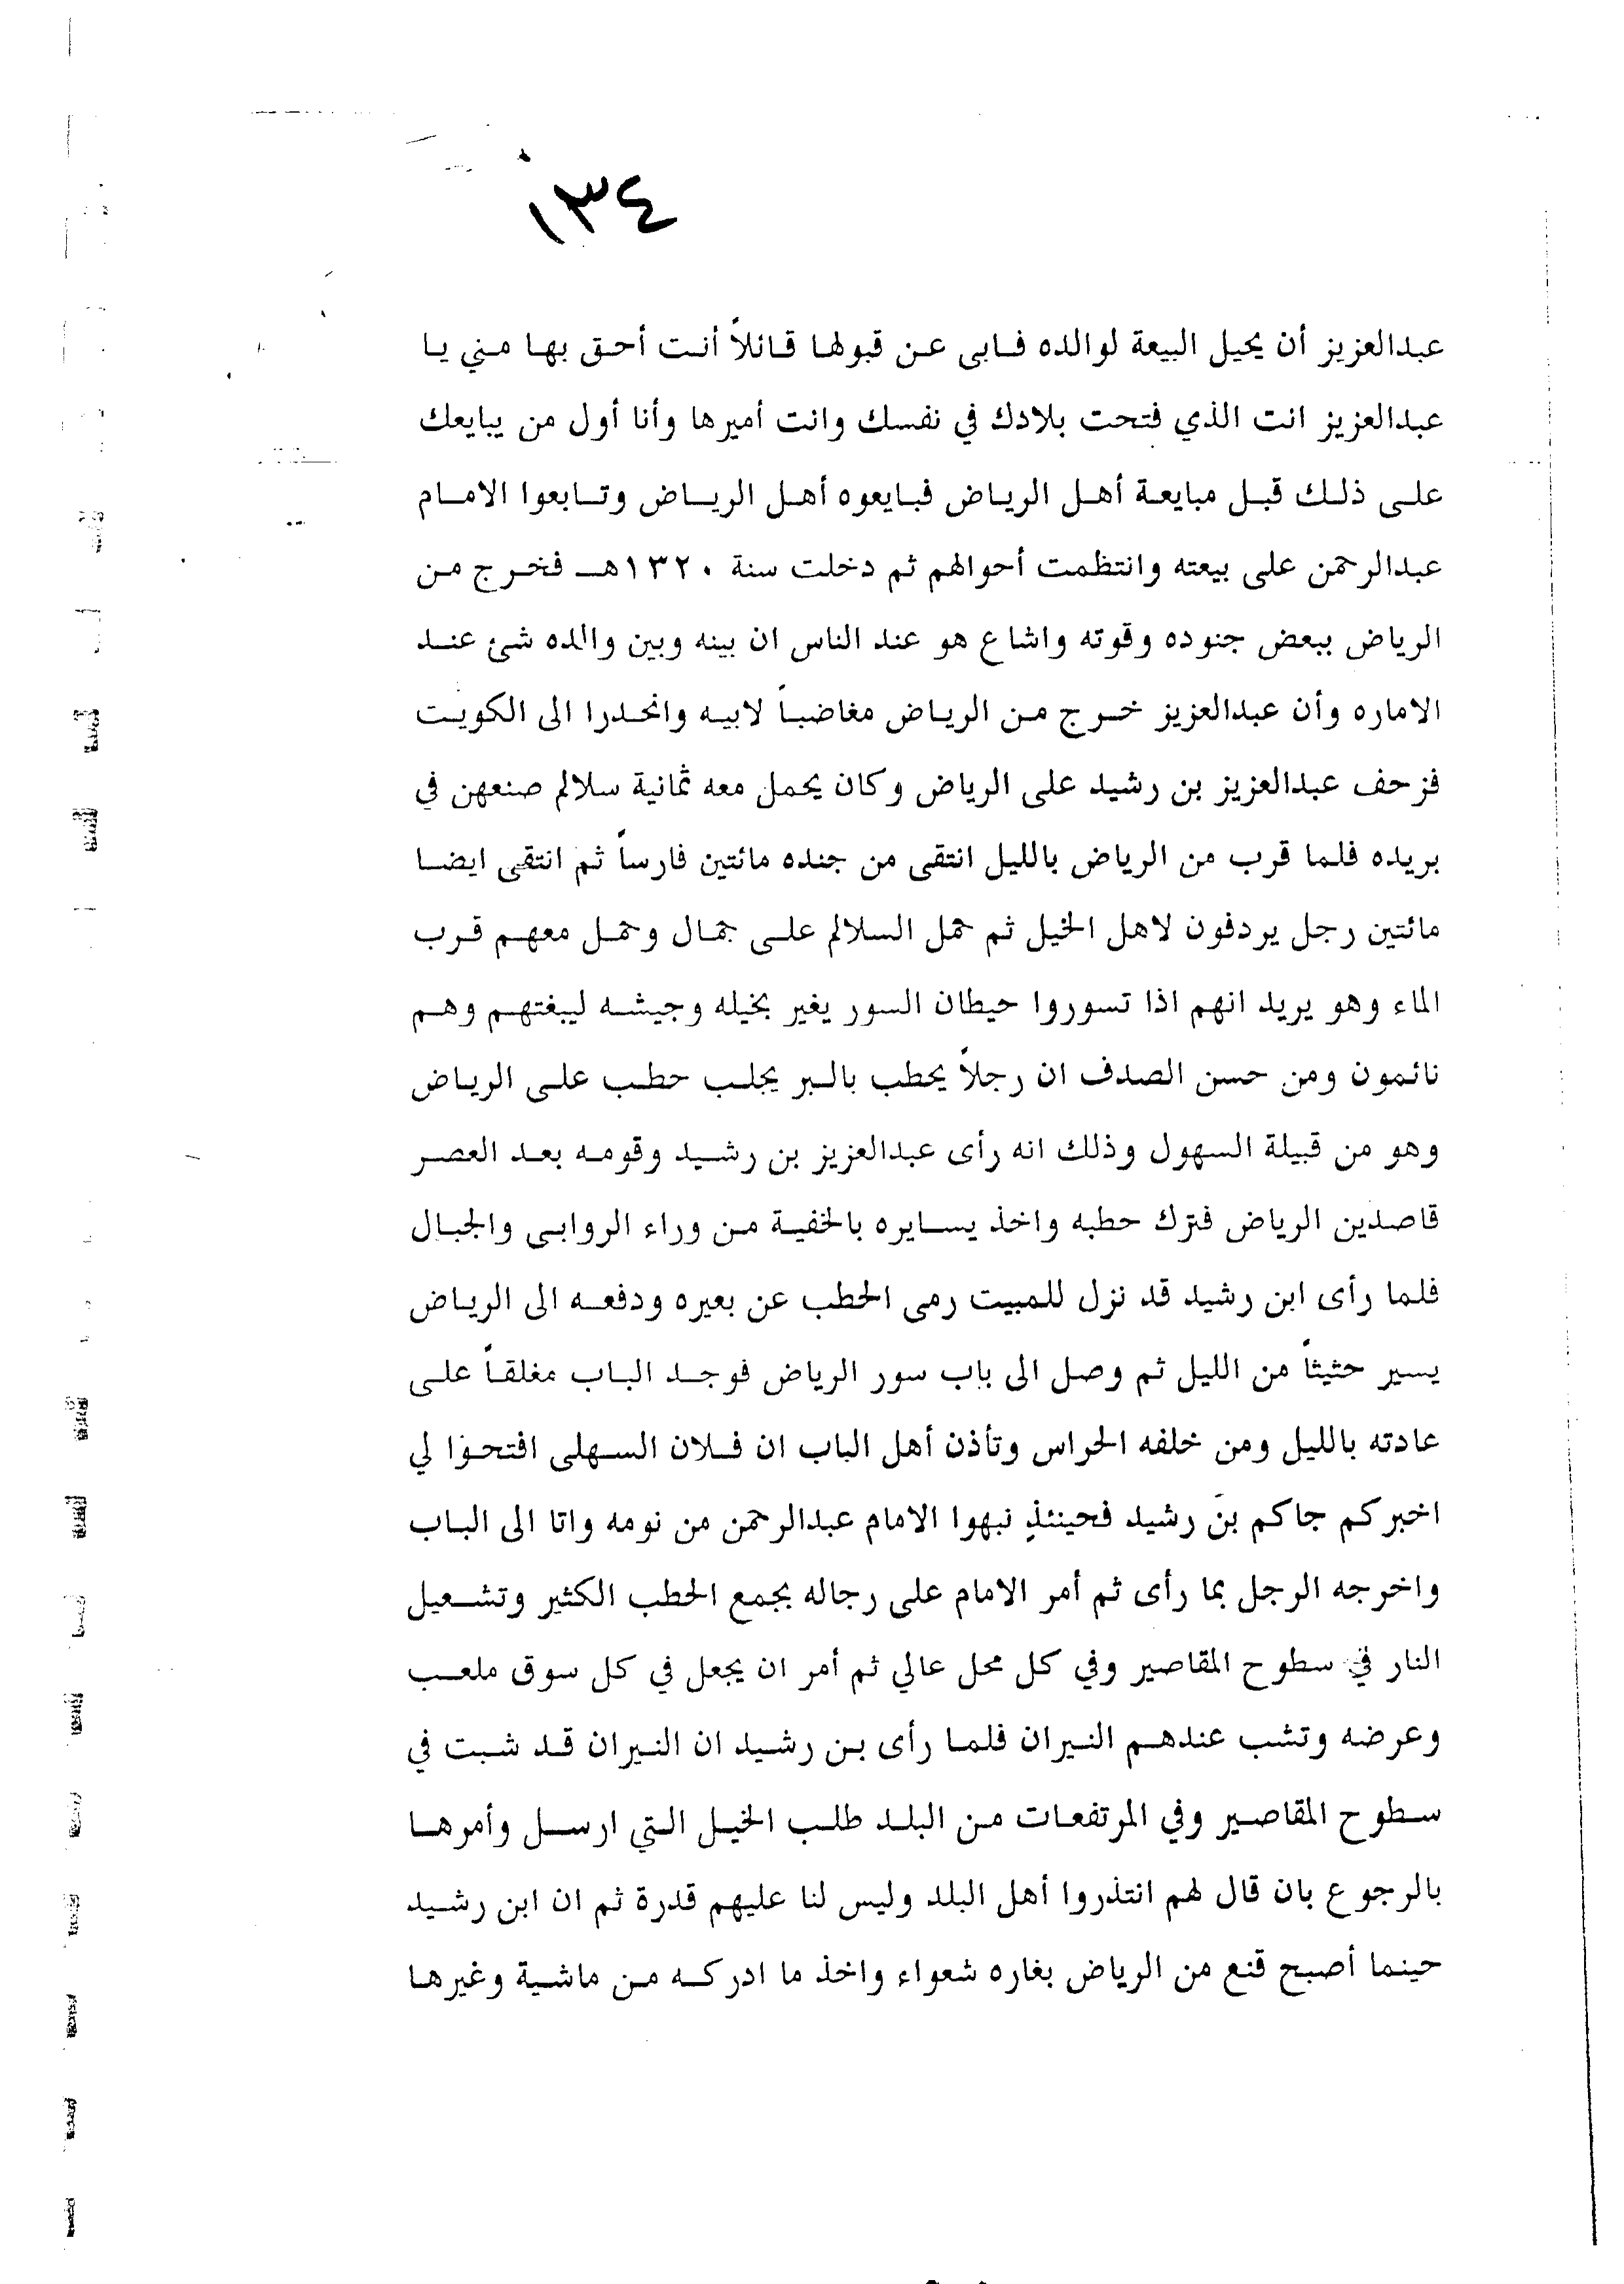 ١٣٤
عبدالعزيز أن يحيل البيعة لوالده فابى عن قبولها قائلاً أنت أحق بها مني يا
عبدالعزيز انت الذي فتحت بلادك في نفسك وانت أميرها وأنا أول من يبايعك
على ذلك قبل مبايعة أهل الرياض فبايعوه أهل الرياض وتابعوا الامام
عبدالرحمن على بيعته وانتظمت أحوالهم ثم دخلت سنة ١٣٢٠هـ فخرج من
الرياض ببعض جنوده وقوته واشاع هو عند الناس ان بينه وبين والده شئ عند
الاماره وأن عبدالعزيز خرج من الرياض مغاضباً لابيه وانحدرا الى الكويت
فزحف عبدالعزيز بن رشيد على الرياض وكان يحمل معه ثمانية سلالم صنعهن في
بريده فلما قرب من الرياض بالليل انتقى من جنده مائتين فارساً ثم انتقى ايضا
مائتين رجل يردفون لاهل الخيل ثم حمل السلالم على جمال وحمل معهم قرب
الماء وهو يريد انهم اذا تسوروا حيطان السور يغير بخيله وجيشه ليبغتهم وهم
نائمون ومن حسن الصدف ان رجلاً يحطب بالبر يجلب حطب على الرياض
وهو من قبيلة السهول وذلك انه رأى عبدالعزيز بن رشيد وقومه بعد العصر
قاصدين الرياض فترك حطبه واخذ يسايره بالخفية من وراء الروابى والجبال
فلما رأى ابن رشيد قد نزل للمبيت رمى الحطب عن بعيره ودفعه الى الرياض
يسير حثيثاً من الليل ثم وصل الى باب سور الرياض فوجد الباب مغلقاً على
عادته بالليل ومن خلفه الحراس وتأذن أهل الباب ان فلان السهلى افتحوا لي
اخبركم جاكم بن رشيد فحينئذٍ نبهوا الامام عبدالرحمن من نومه واتا الى الباب
واخرجه الرجل بما رأى ثم أمر الامام على رجاله بجمع الحطب الكثير وتشعيل
النار في سطوح المقاصير وفي كل محل عالي ثم أمر ان يجعل في كل سوق ملعب
وعرضه وتشب عندهم النيران فلما رأى بن رشيد ان النيران قد شبت في
سطوح المقاصير وفي المرتفعات من البلد طلب الخيل التي ارسل وأمرها
بالرجوع بان قال لهم انتذروا أهل البلد وليس لنا عليهم قدرة ثم ان ابن رشيد
حينما أصبح قنع من الرياض بغاره شعواء واخذ ما ادركه من ماشية وغيرها